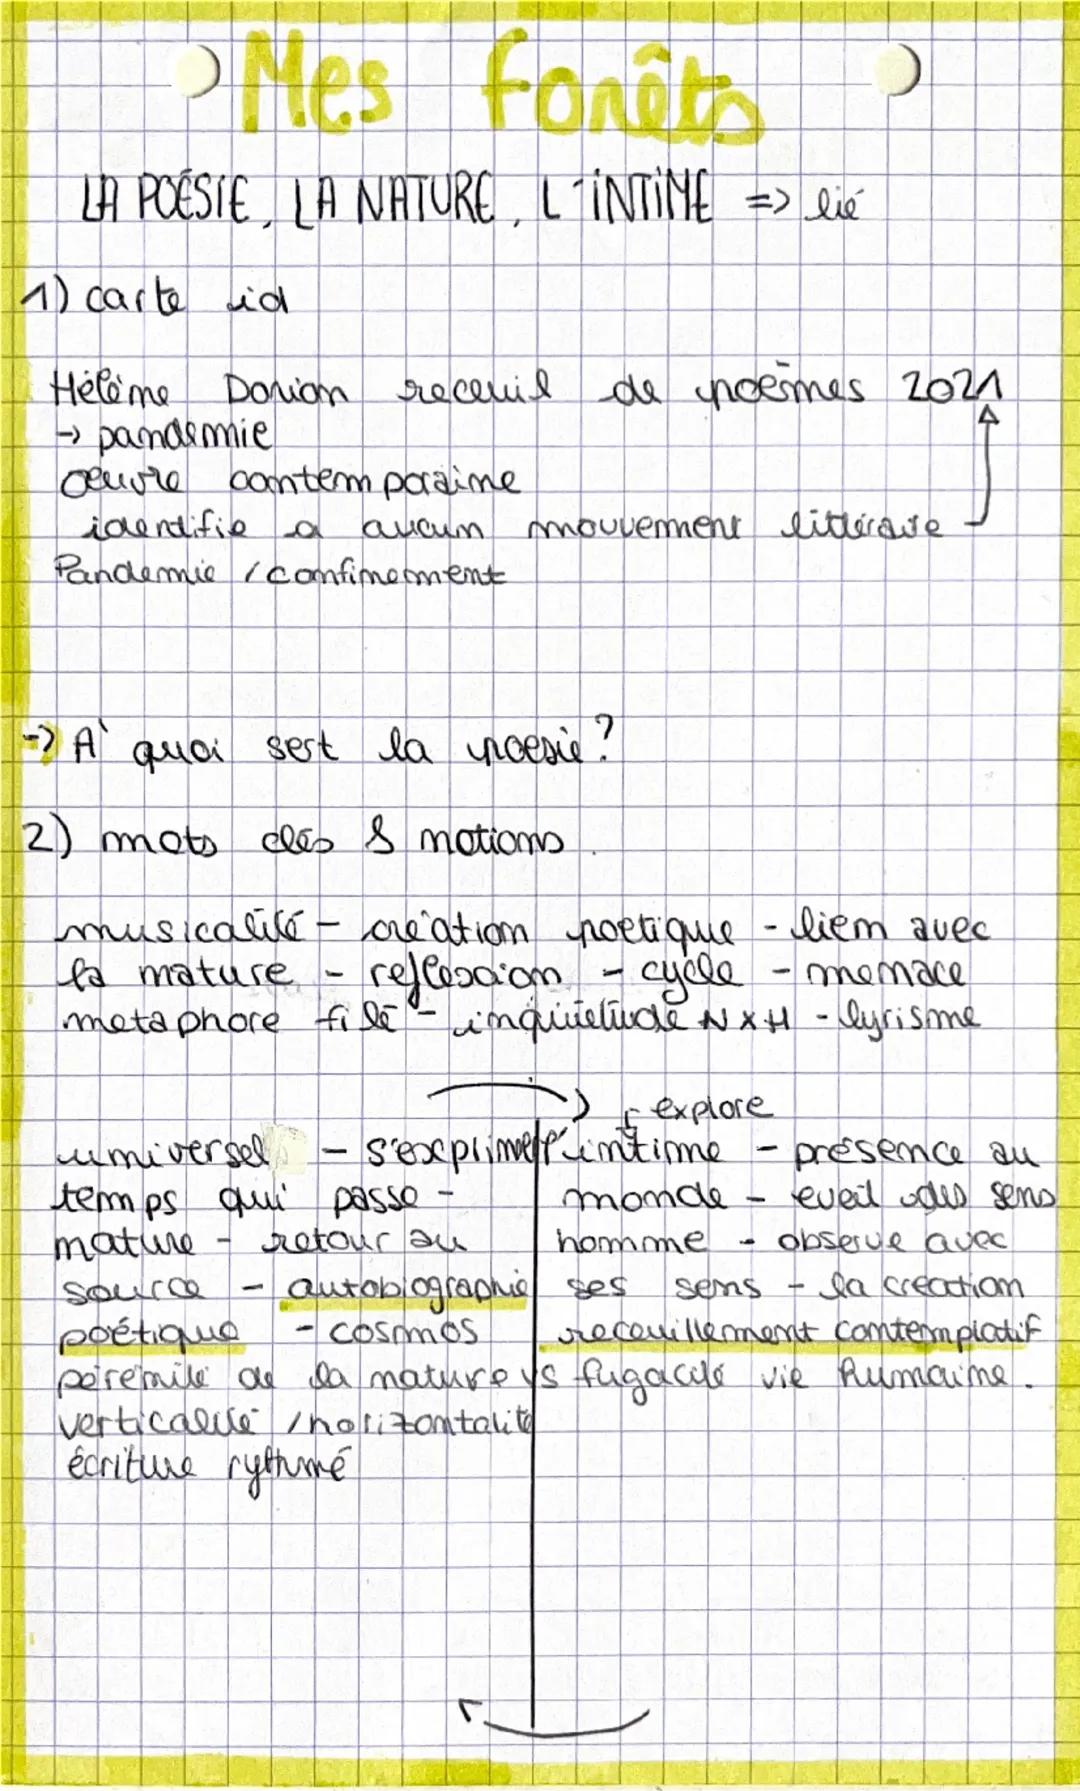 Mes forêts
LA POÉSIE, LA NATURE, L'INTIME => lié
1) carte id
Hélène Dorion receuil de poèmes 2021
→ pandemie
œuvre contemporaine
identifie a aucun mouvement littéraire
Pandemie / confinement
-> A' quoi sert la poesie?
2) mots clés & notions
musicalité - création poetique - lien avec
la nature - reflexion - cycle - menace
metaphore filé - inquietude N x H - lyrisme
explore
universel - s'exprimer
temps qui passe -
nature - retour au
source - autobiographie
poétique - cosmos
l'intime - présence au
monde - eveil des sens
homme - observe avec
ses sens - la creation
receuillement contemplatif
pérénité de la nature vs fugacité vie humaine.
verticalité / horizontalité
écriture rythmé